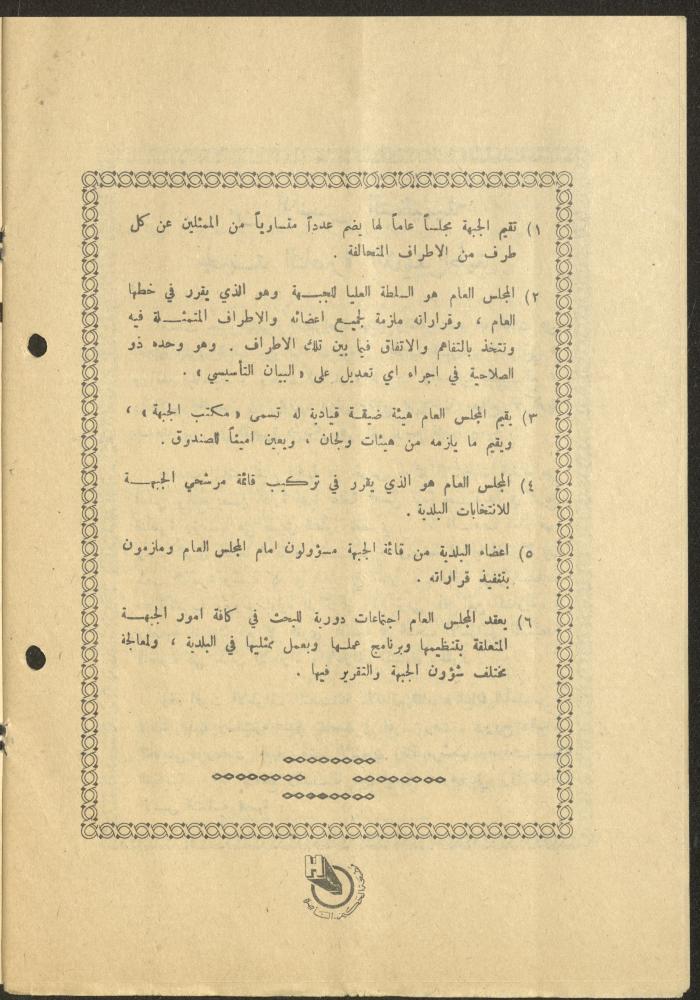 ١) تقيم الجبهة مجلساً عاماً لها يضم عدداً متساوياً من الممثلين عن كل
طرف من الاطراف المتحالفة .
٢) المجلس العام هو السلطة العليا للجبهة وهو الذي يقرر في خطها
العام ، وقراراته ملزمة لجميع اعضائه والاطراف المتمثلة فيه
وتتخذ بالتفاهم والاتفاق فيما بين تلك الاطراف . وهو وحده ذو
الصلاحية في اجراء اي تعديل على « البيان التأسيسي » .
٣) يقيم المجلس العام هيئة ضيقة قيادية له تسمى « مكتب الجبهة » ،
ويقيم ما يلزمه من هيئات ولجان ، ويعين اميناً للصندوق .
٤) المجلس العام هو الذي يقرر في تركيب قائمة مرشحي الجبهة
للانتخابات البلدية .
٥) اعضاء البلدية من قائمة الجبهة مسؤولون امام المجلس العام وملزمون
بتنفيذ قراراته .
٦) يعقد المجلس العام اجتماعات دورية للبحث في كافة امور الجبهة
المتعلقة بتنظيمها وبرنامج عملها وبعمل ممثليها في البلدية ، ولمعالجة
مختلف شؤون الجبهة والتقرير فيها .
H
مطبعة الحكيم الناصرة